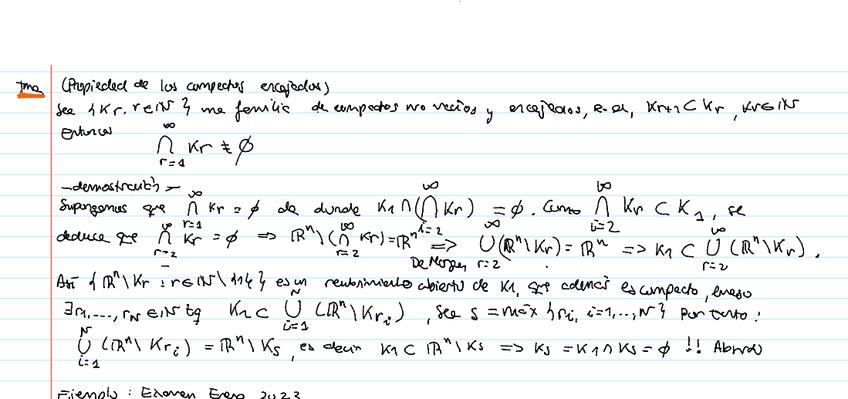 Tma (Propiedad de los compactos encajados)
Sea {Kr : r ∈ ℕ} una familia de compactos no vacíos y encajados, e.d., Kr+1 ⊂ Kr, ∀r ∈ ℕ
Entonces
⋂_{r=1}^{∞} Kr ≠ ∅
-demostración-
Supongamos que ⋂_{r=1}^{∞} Kr = ∅ de donde K1 ∩ (⋂_{i=2}^{∞} Kr) = ∅. Como ⋂_{i=2}^{∞} Kr ⊂ K1, se
deduce que ⋂_{r=2}^{∞} Kr = ∅ => ℝⁿ \ (⋂_{r=2}^{∞} Kr) = ℝⁿ =>_{De Morgan} ⋃_{r=2}^{∞} (ℝⁿ \ Kr) = ℝⁿ => K1 ⊂ ⋃_{r=2}^{∞} (ℝⁿ \ Kr).
Así {ℝⁿ \ Kr : r ∈ ℕ \ {1}} es un recubrimiento abierto de K1, que además es compacto, luego
∃ r1, ..., rN ∈ ℕ tq K1 ⊂ ⋃_{i=1}^{N} (ℝⁿ \ Kri), sea s = máx {ri, i=1,...,N} Por tanto:
⋃_{i=1}^{N} (ℝⁿ \ Kri) = ℝⁿ \ Ks, es decir K1 ⊂ ℝⁿ \ Ks => Ks = K1 ∩ Ks = ∅ !! Absurdo
Ejemplo: Examen Enero 2023